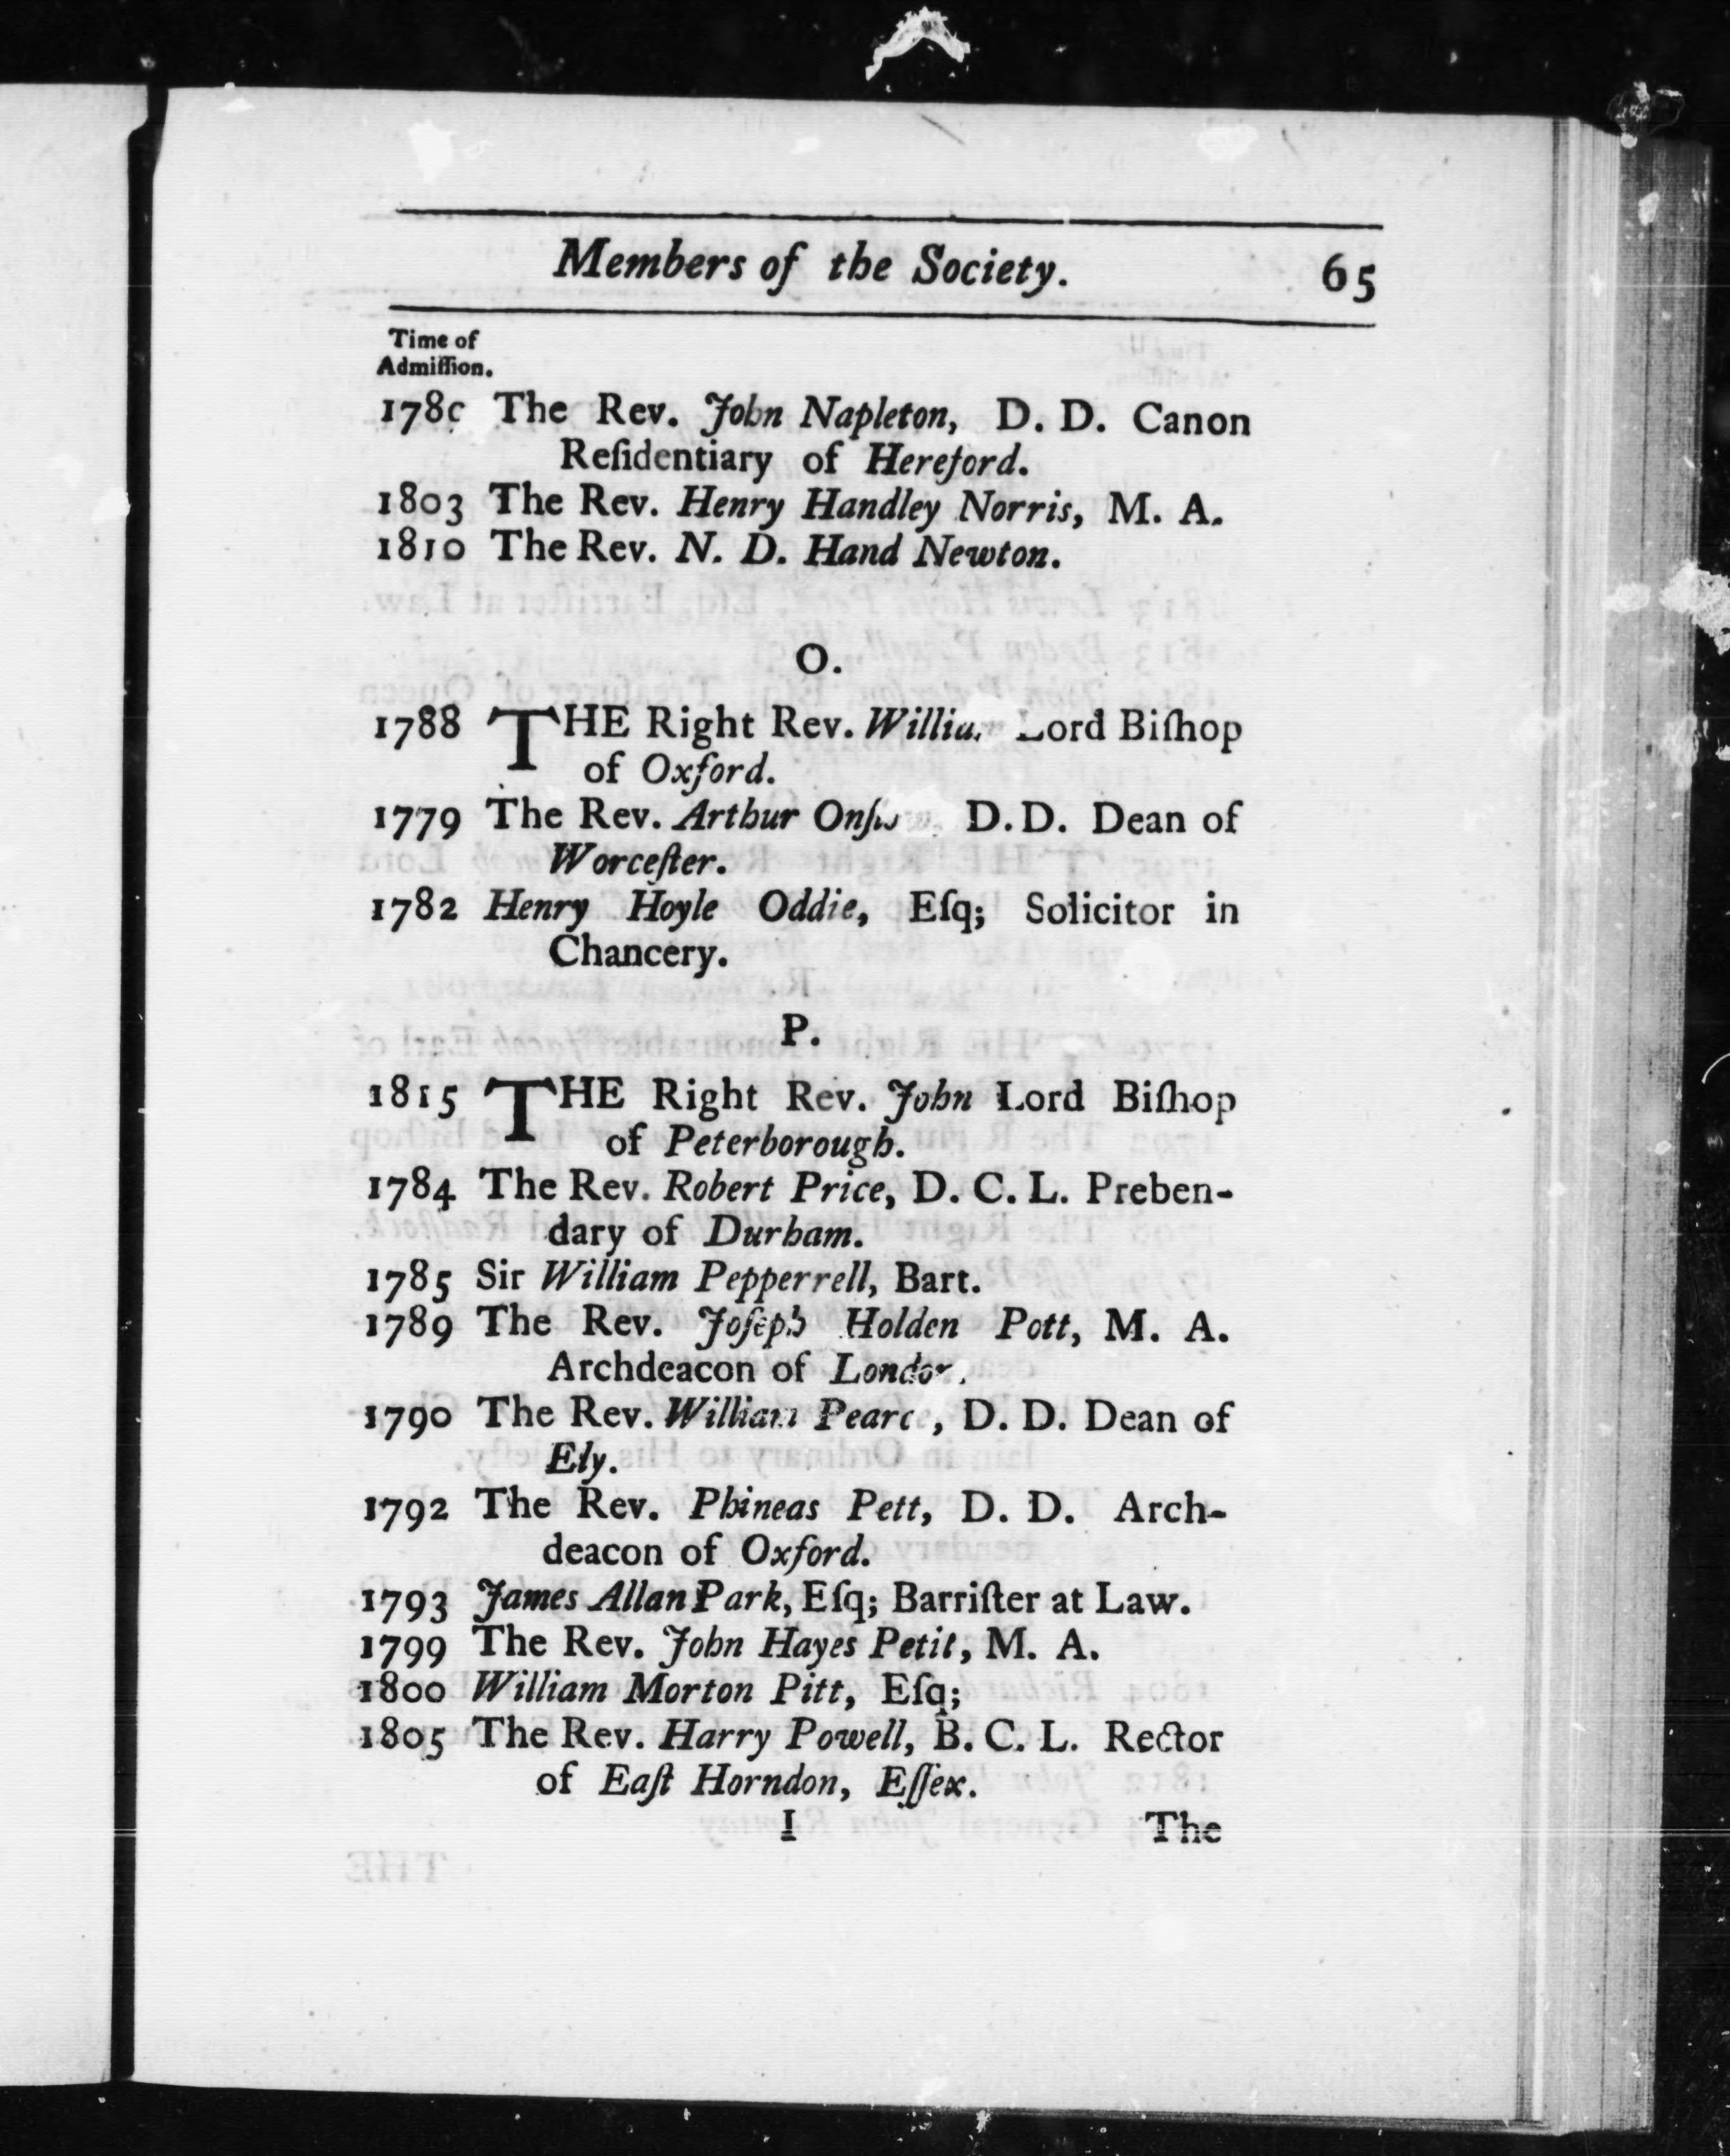 Members of the Society. 65
Time of
Admiſſion.
The Rev. John Napleton, D. D. Canon
Reſidentiary of Hereford.
1803 The Rev. Henry Handley Norris, M. A.
1810 The Rev. N. D. Hand Newton.
O.
1788 THE Right Rev. William Lord Biſhop
of Oxford.
1779 The Rev. Arthur Onſlow, D.D. Dean of
Worceſter.
1782 Henry Hoyle Oddie, Eſq; Solicitor in
Chancery.
P.
1815 THE Right Rev. John Lord Biſhop
of Peterborough.
1784 The Rev. Robert Price, D. C. L. Preben-
dary of Durham.
1785 Sir William Pepperrell, Bart.
1789 The Rev. Joſeph Holden Pott, M. A.
Archdeacon of London.
1790 The Rev. William Pearce, D. D. Dean of
Ely.
1792 The Rev. Phineas Pett, D. D. Arch-
deacon of Oxford.
1793 James Allan Park, Eſq; Barriſter at Law.
1799 The Rev. John Hayes Petit, M. A.
1800 William Morton Pitt, Eſq;
1805 The Rev. Harry Powell, B. C. L. Rector
of Eaſt Horndon, Eſſex.
I The